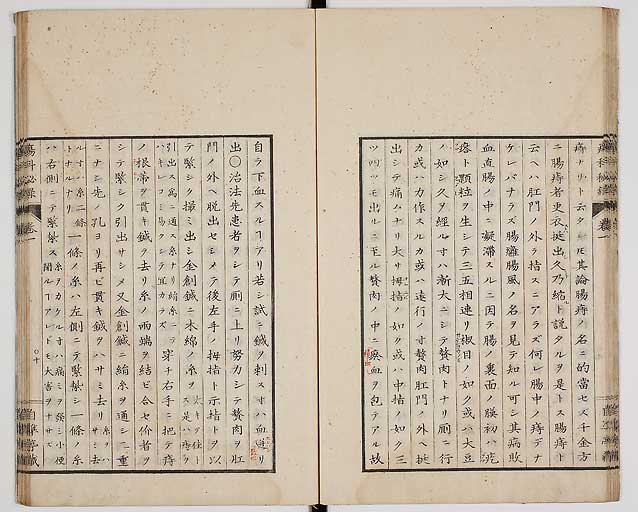 痔ナリト云タシ凡其論腸痔ノ名ニ的當セズ千金方
ニ腸痔者更衣挺出久乃縮ト説タルヲ是トス腸痔ト
云ヘハ肛門ノ外ヲ指スニアラズ何レ腸中ノ痔デナ
ケレバナラズ腸癰腸風ノ名ヲ見テ知ル可シ其病敗
血直腸ノ中ニ凝滞スルニ因テ腸ノ裏面ノ膜初ハ
瘩ト顆粒ヲ生シテ三五相連リ椒目ノ如ク或ハ大豆
ノ如シ久ヲ經ルオハ漸大ニシテ贅肉トナリ厠ニ行
カ或ハカ作スルカ或ハ遠行ノ寸贅肉肛門ノ外ヘ挺
出シテ痛ムナリ大サ拇指ノ如ク或ハ中指ノ如ク三
ツ四ツモ出ルニ至ル贅肉ノ中ニ瘀血ヲ包テアル故
自ラ下血スルヿアリ若シ試ニ鍼ヲ刺スオハ血迸リ
出〇治法先患者ヲシテ厠ニ上リ努力シテ贅肉ヲ肛
門ノ外ヘ脱出セシメテ後左手ノ拇指ト示指トヲ以
テ緊シク撮ミ出シ金創鍼ニ木綿ノ糸ヲ
引出ス爲ニ通ス糸ナリ絹糸ニテ
ハキレコミ易クシテ宜カラズ
穿チ右手ニ把テ痔
ノ根帶ヲ貫キ鍼ヲ去リ糸ノ兩端ヲ結ビ合セ介者ヲ
シテ緊シク引出サシメ又金創鍼ニ絹糸ヲ通シ二重
ニナシ先ノ孔ヨリ再ビ貫キ鍼ヲハサミ去リ
ルオハ糸二條
トナルナリ
一條ノ糸ハ左側ニテ緊シ一條ノ糸
ハ右側ニテ緊紮ス
糸ヲカクルオハ痛ミヲ發シ小便
閉ルヿアレドモ大害ヲナサズ
瘍科秘録
卷一
〇十